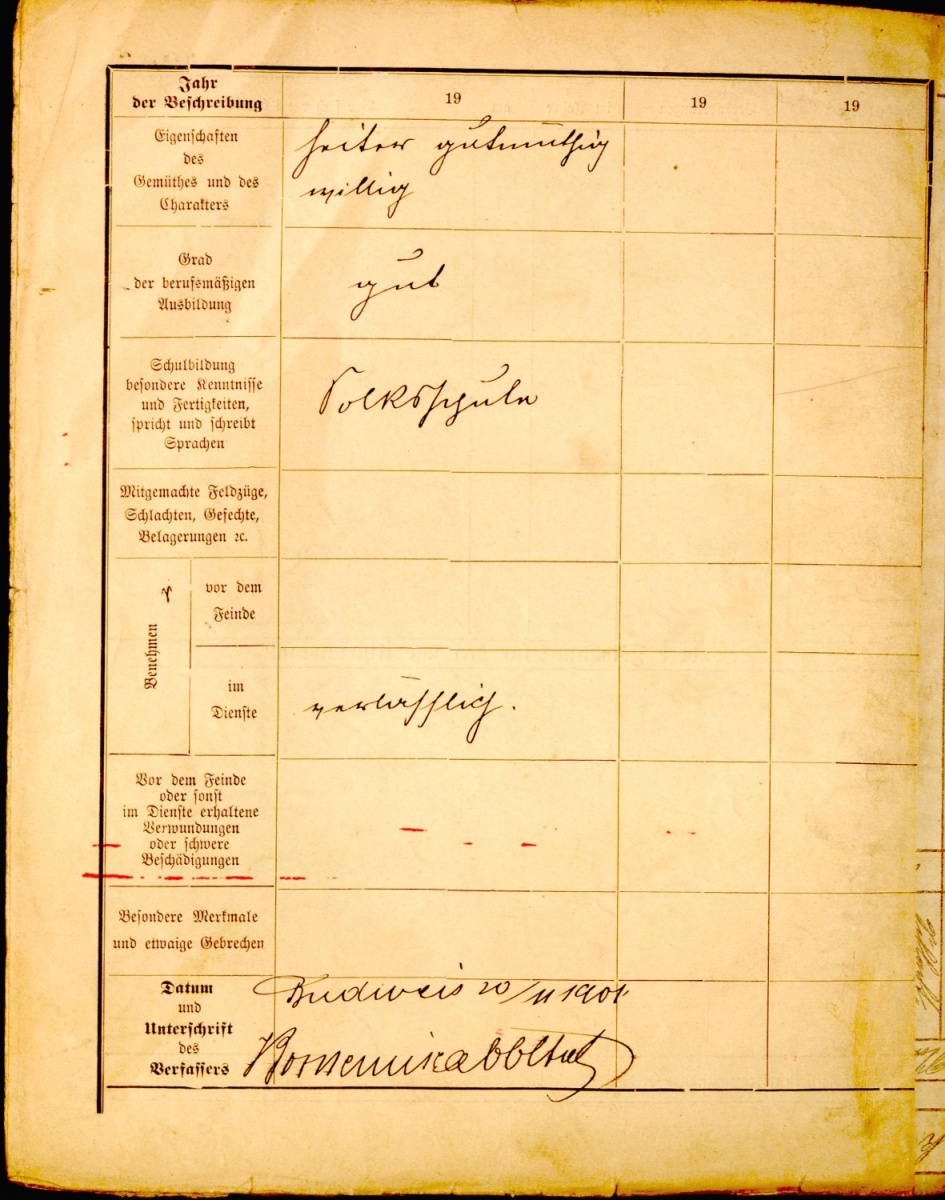 Jahr
der Beschreibung
19
19
19
Eigenschaften
des
Gemüthes und des
Charakters
heiter gutmüthig
willig
Grad
der berufsmäßigen
Ausbildung
gut
Schulbildung
besondere Kenntnisse
und Fertigkeiten,
spricht und schreibt
Sprachen
Volksschule
Mitgemachte Feldzüge,
Schlachten, Gefechte,
Belagerungen ꝛc.
Benehmen
vor dem
Feinde
im
Dienste
verlässlich.
Vor dem Feinde
oder sonst
im Dienste erhaltene
Verwundungen
oder schwere
Beschädigungen
Besondere Merkmale
und etwaige Gebrechen
Datum
und
Unterschrift
des
Verfassers
Budweis 20/11 1901